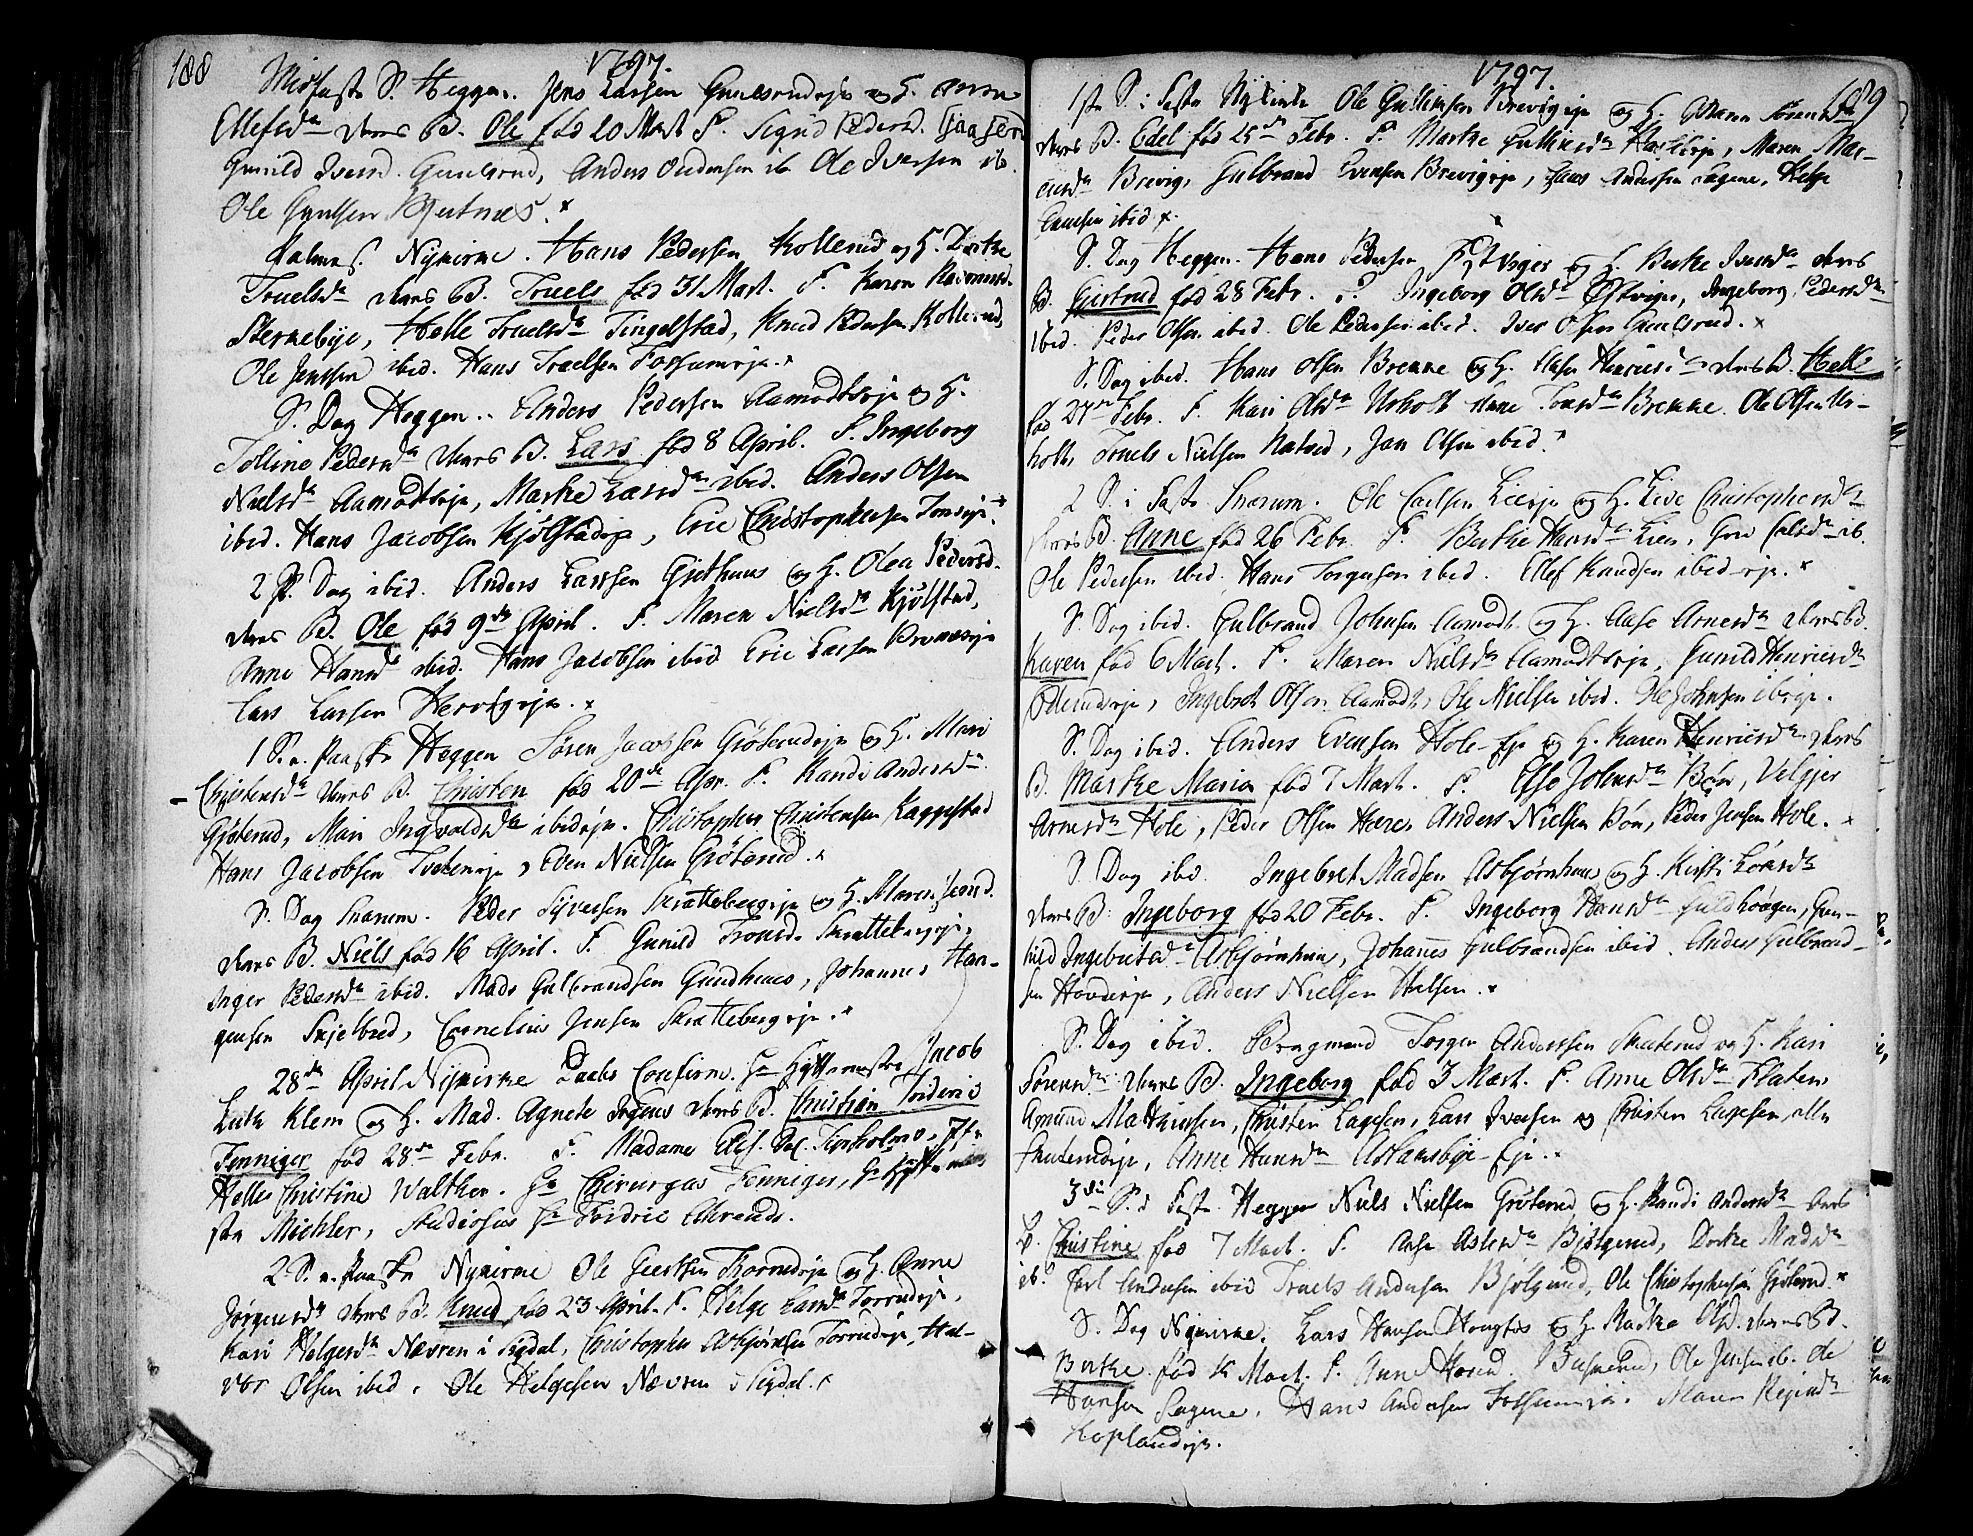 188
1797.
Midfaste S. Heggen. Jens Larsen Gunelsrudeje og H. Maren
Ellefsdr deres B. Ole fød 20 Mart. F. Sigrid Pedersd.
Gunild Iversd. Gunelsrud, Anders Andersen ib. Ole Iversen ib.
Ole
Palmes. Nykirke. Hans Pedersen Kollerud og H. Dorthe
Truelsdr deres B. Truels fød 31 Mart. F. Karen Rasmusd.
Sternebye, Helle Truelsdr Tingelstad, Knud Pedersen Kollerud,
Ole Jensen ibid. Hans Truelsen Fossumeje. x
S. Dag Heggen. Anders Pedersen Aamodtseje og H.
Tolline Pedersdr deres B. Lars fød 8 April. F. Ingeborg
Nielsdr Aamodtseje, Marthe Larsdr ibid. Anders Olsen
ibid. Hans Jacobsen Kjølstadeje, Eric Christophersen
2 P. Dag ibid. Anders Larsen Gjethuus og H. Olea Pedersd.
deres B. Ole fød 9de April. F. Maren Nielsdr Kjølstad,
Anne Hansdr ibid. Hans Jacobsen ibid. Eric Larsen
Lars Larsen
1 S. e. Paaske Heggen Søren Jacobsen Grøterudeje og H. Mari
Christensdr deres B. Christen fød 20de Apr. F. Randi Andersdr
Grøterud, Mari Ingvaldsdr ibideje. Christopher Christensen Kaggestad
Hans Jacobsen Tveteneje, Even Nielsen Grøterud. x
S. Dag Snarum. Peder Syversen Skrattebergeje og H. Maren
deres B. Niels fød 16 April. F. Gunild Tronsd. Skrattebergeje,
Inger Pedersdr ibid. Mads Gulbrandsen Gundhuus, Johannes Han-
sen Skjelbred, Cornelius Jensen Skrattebergeje. x
28de April Nykirke Daabs Confirm. Hr Hyttemester Jacob
Luth Klem og H. Mad. Agnete deres B. Christian Frideric
Fenniger fød 28de Febr. F. Madame
Helle Christine Walther. Hr Chirurgus Fenniger, Hr Hyttemei-
ster Michler, Studiosus Hr Fridric
2 S. e. Paaske Nykirke Ole Geertsen Torrudeje og H. Anne
Jørgensdr deres B. Knud fød 23 April. F. Helge Larsdr Torrudeje,
Kari Helgesdr Nævren i Sigdal, Christopher Asbjørnsen Torrudeje, Hal-
vor Olsen ibid. Ole Helgesen Nævren i Sigdal. x
1797.
189
1ste S. i Faste Nykirke Ole Gulliksen Brevigeje og H. Maren Sørensdr
deres B. Edel fød 25de Febr. F. Marthe Gulliksdr Maren Mar-
Brevig, Gulbrand Evensen Brevigeje, Lars Andersen Sagene, Helge
ibid. x.
S. Dag Heggen. Hans Pedersen og H. Berthe Iversdr deres
B. Gjertrud fød 28 Febr. F. Ingeborg Olsdr Ingeborg Pedersdr
ibid. Peder Olsen ibid. Ole Pedersen ibid. Iver Olsen Gunelsrud. x
S. Dag ibid. Hans Olsen Brekke og H. deres B. Helle
fød 27de Febr. F. Kari Olsdr Urholt Anne Brekke. Ole Olsen Ur-
holt, Truels Nielsen Jan Olsen ibid. x
2 S. i Faste Snarum. Ole Carlsen Lieeje og H. Live Christophersdr
deres B. Anne fød 26 Febr. F. Berthe Hansdr Lien,
Ole Pedersen ibid. Hans Torgersen ibid. Ellef Knudsen ibid-eje. x
S. Dag ibid. Gulbrand Johnsen Aamodt og H. Aase Arnesdr deres B.
Karen fød 6 Mart. F. Maren Nielsdr Aamodtseje, Gunild Henricsdr
Ingebret Olsen Aamodt, Ole Nielsen ibid. Ole Johnsen ibeje.
S. Dag ibid. Anders Evensen Hole-Eje og H. Karen Henricsdr deres
B. Marthe Maria fød 7 Mart. F. Else Johnsdr Bøn, Velgjer
Arnesdr Hole, Peder Olsen Hære, Anders Nielsen Bøn, Peder Jensen Hole. x
S. Dag ibd. Ingebret Madsen Asbjørnhuus og H. Kirsti
deres B. Ingeborg fød 20 Febr. F. Ingeborg Hansdr Guldhougen, Gun-
hild Ingebretsdr Asbjørnhuus, Johannes Gulbrandsen ibid. Anders Gulbrand-
sen Hovdeeje, Anders Nielsen x
S. Dag ibid. Bergmand Torger Anderssen Skuterud og H. Kari
Sørensdr deres B. Ingeborg fød 3 Mart. F. Anne Olsdr Flaten,
Amund Mathiessen, Christen Lagesen, Lars Iversen og Christen Lagesen, alle
Skuterudeje, Anne Hansdr Aslaksbye-Eje. x
3die S. i Faste Heggen Niels Nielsen Grøterud og H. Randi Andersdr deres
B. Christine fød 7 Mart. F. Aase Aslesdr Bjølgerud, Dorthe Madsdr
ib. Carl Andersen ibid Truels Andersen Bjølgerud, Ole Christophersen Grøterud. x
S. Dag Nykirke. Lars Hansen Hougfos og H. Marthe deres B.
Berthe fød 14 Mart. F. Anne Ole Jensen ib. Ole
Hansen Sagene, Hans Andersen Fossumeje. Maren
Koplandeje.